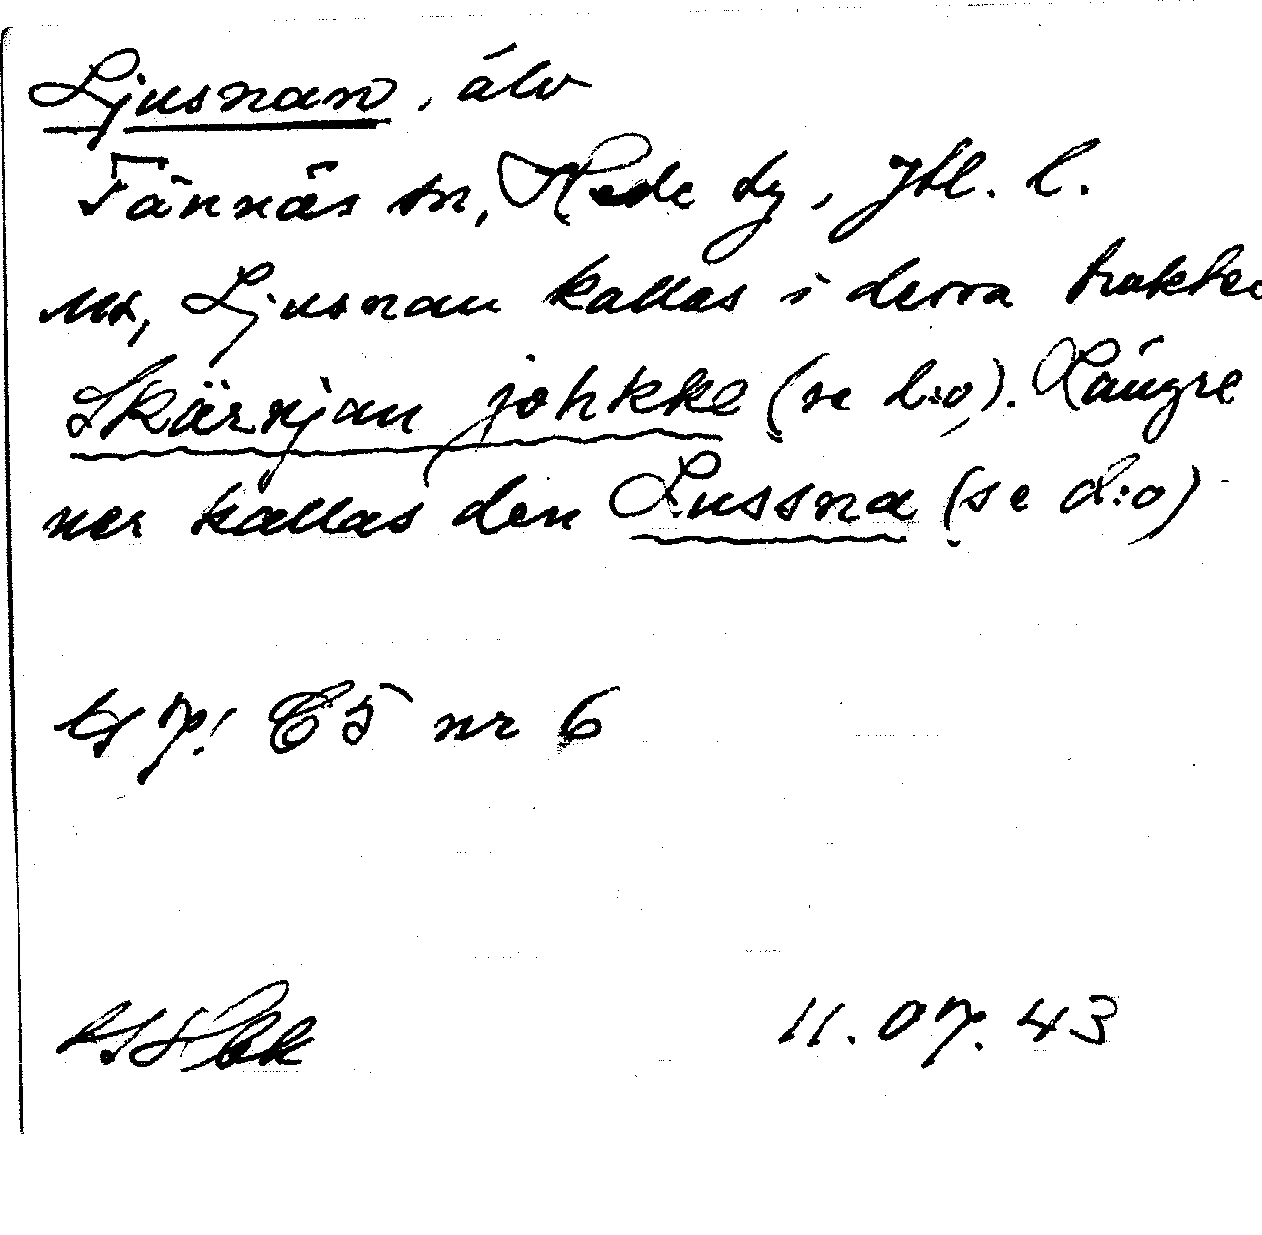 Ljusnan, älv
Tännäs sn, Hede dg, Jtl. l.
Ljusnan kallas i dessa trakter
Skärvjan johkke (se d:o). Längre
ner kallas den Lussna (se d:o)
C5 nr 6
11.07.43